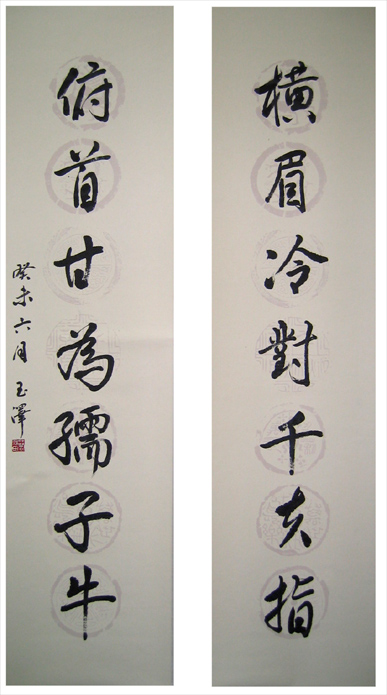 橫眉冷對千夫指
俯首甘為孺子牛
癸未六月 玉澤